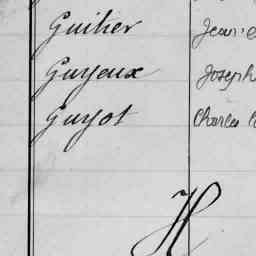 Guilier Jean
Guyeux Joseph
Guyot Charles
H